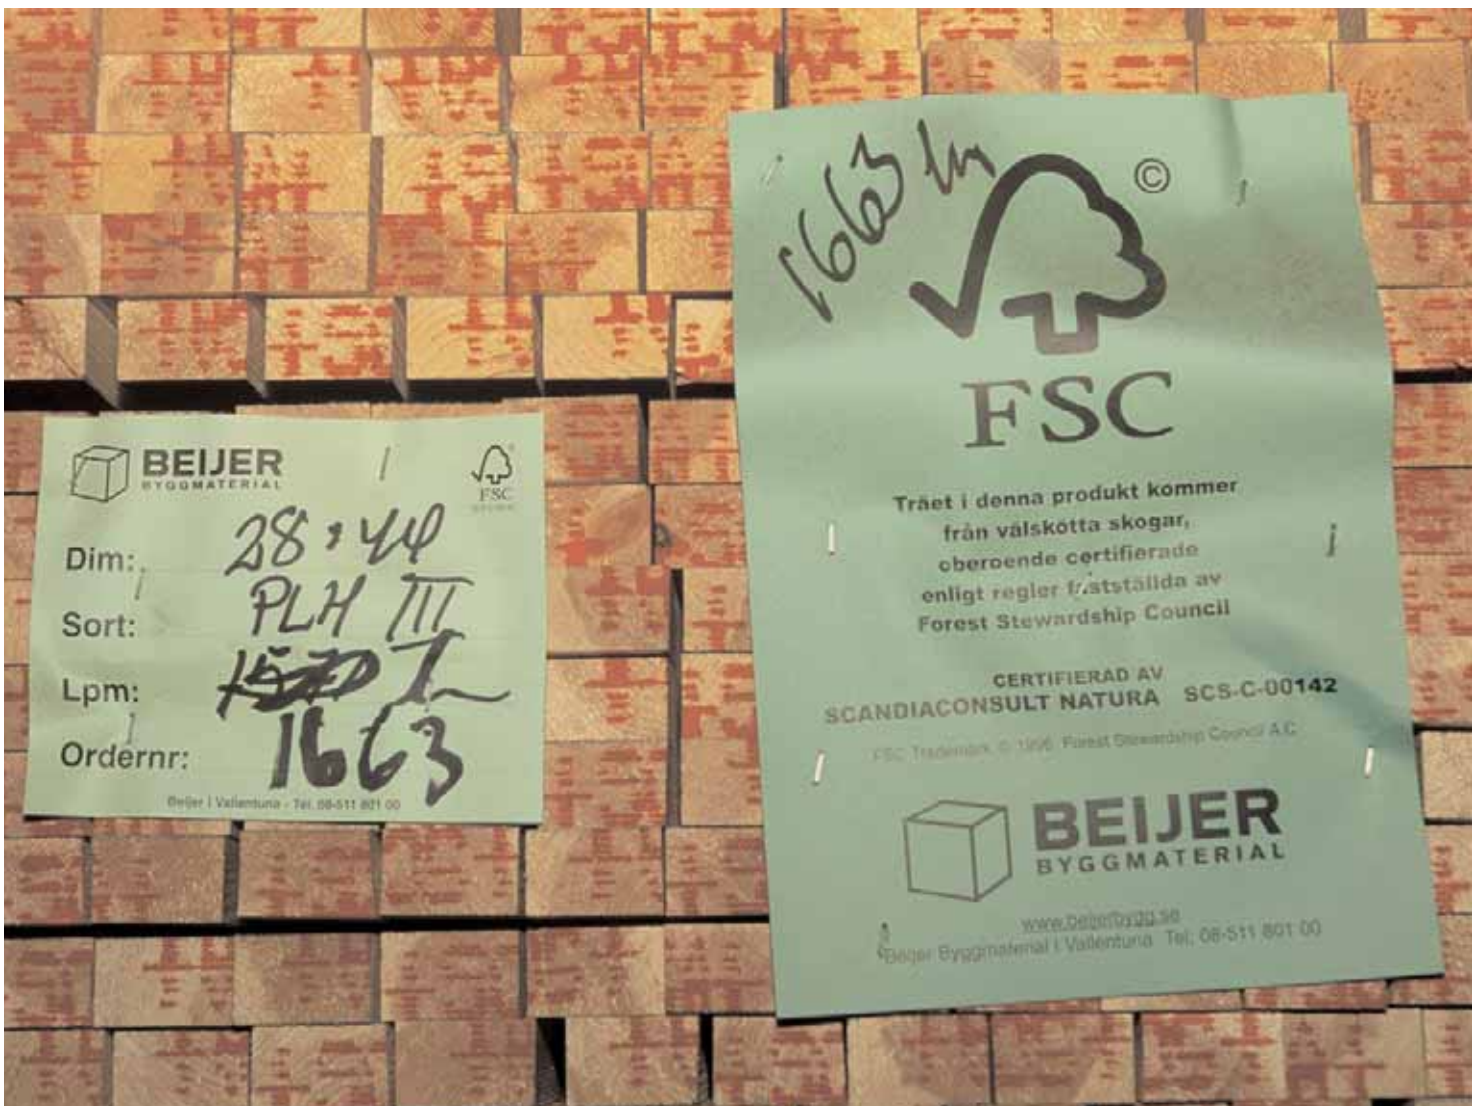 BEIJER
BYGGMATERIAL
FSC
Dim:
28
Sort: PLH III
Lpm:
Ordernr: 1663
Beijer i Vallentuna - Tel. 08-511 801 00
1663
©
FSC
Träet i denna produkt kommer
från välskötta skogar,
oberoende certifierade
enligt regler fastställda av
Forest Stewardship Council
CERTIFIERAD AV
SCANDIACONSULT NATURA SCS-C-00142
FSC Trademark © 1996 Forest Stewardship Council A.C.
BEIJER
BYGGMATERIAL
www.beijerbygg.se
Beijer Byggmaterial i Vallentuna Tel: 08-511 801 00